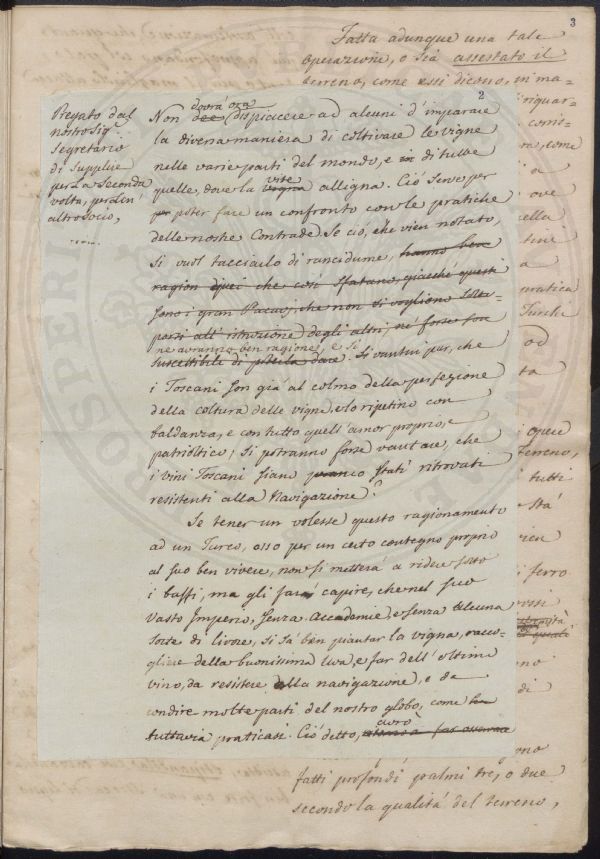 3
Fatta adunque una tale
operazione, o sia assestato il
terreno, come essi dicono, in ma=
2
Pregato dal
nostro Sig.
Segretario
di Supplire
per la seconda
volta, per un'
altro socio,
dovrà ora
Non dee dispiacere ad alcuni d'imparare
la diversa maniera di coltivare le vigne
nelle varie parti del mondo, e in di tutte
vite
quelle, dove la vigna alligna. Ciò serve per
per poter fare un confronto con le pratiche
delle nostre Contrade. Se ciò, che vien notato,
si vuol tacciarlo di rancidume, hanno ben
ragion quei che così sfatano, giacchè questi
sono i gran che non si vogliono
all'istruzione degli altri, né forse son
ne avranno ben ragione, e si
suscettibili di dare. Si vantin pur, che
i Toscani son già al colmo della perfezione
della coltura delle vigne, e lo ripetino con
baldanza, e con tutto quell'amor proprio, e
patriottico; si potranno forse vantare, che
i vini Toscani siano stati ritrovati
resistenti alla Navigazione?
Se tener un volesse questo ragionamento
ad un Turco, esso per un certo contegno proprio
al suo ben vivere, non si metterà a rider sotto
i baffi, ma gli farà capire, che nel suo
vasto Imperio, senza Accademie, e senza alcuna
sorte di livore, si sà ben piantar la vigna, racco=
gliere della buonissima uva, e far dell'ottimo
vino, da resistere alla navigazione, e da
condire molte parti del nostro globo, come
tuttavia praticasi. Ciò detto,
fatti profondi palmi tre, o due
secondo la qualità del terreno,